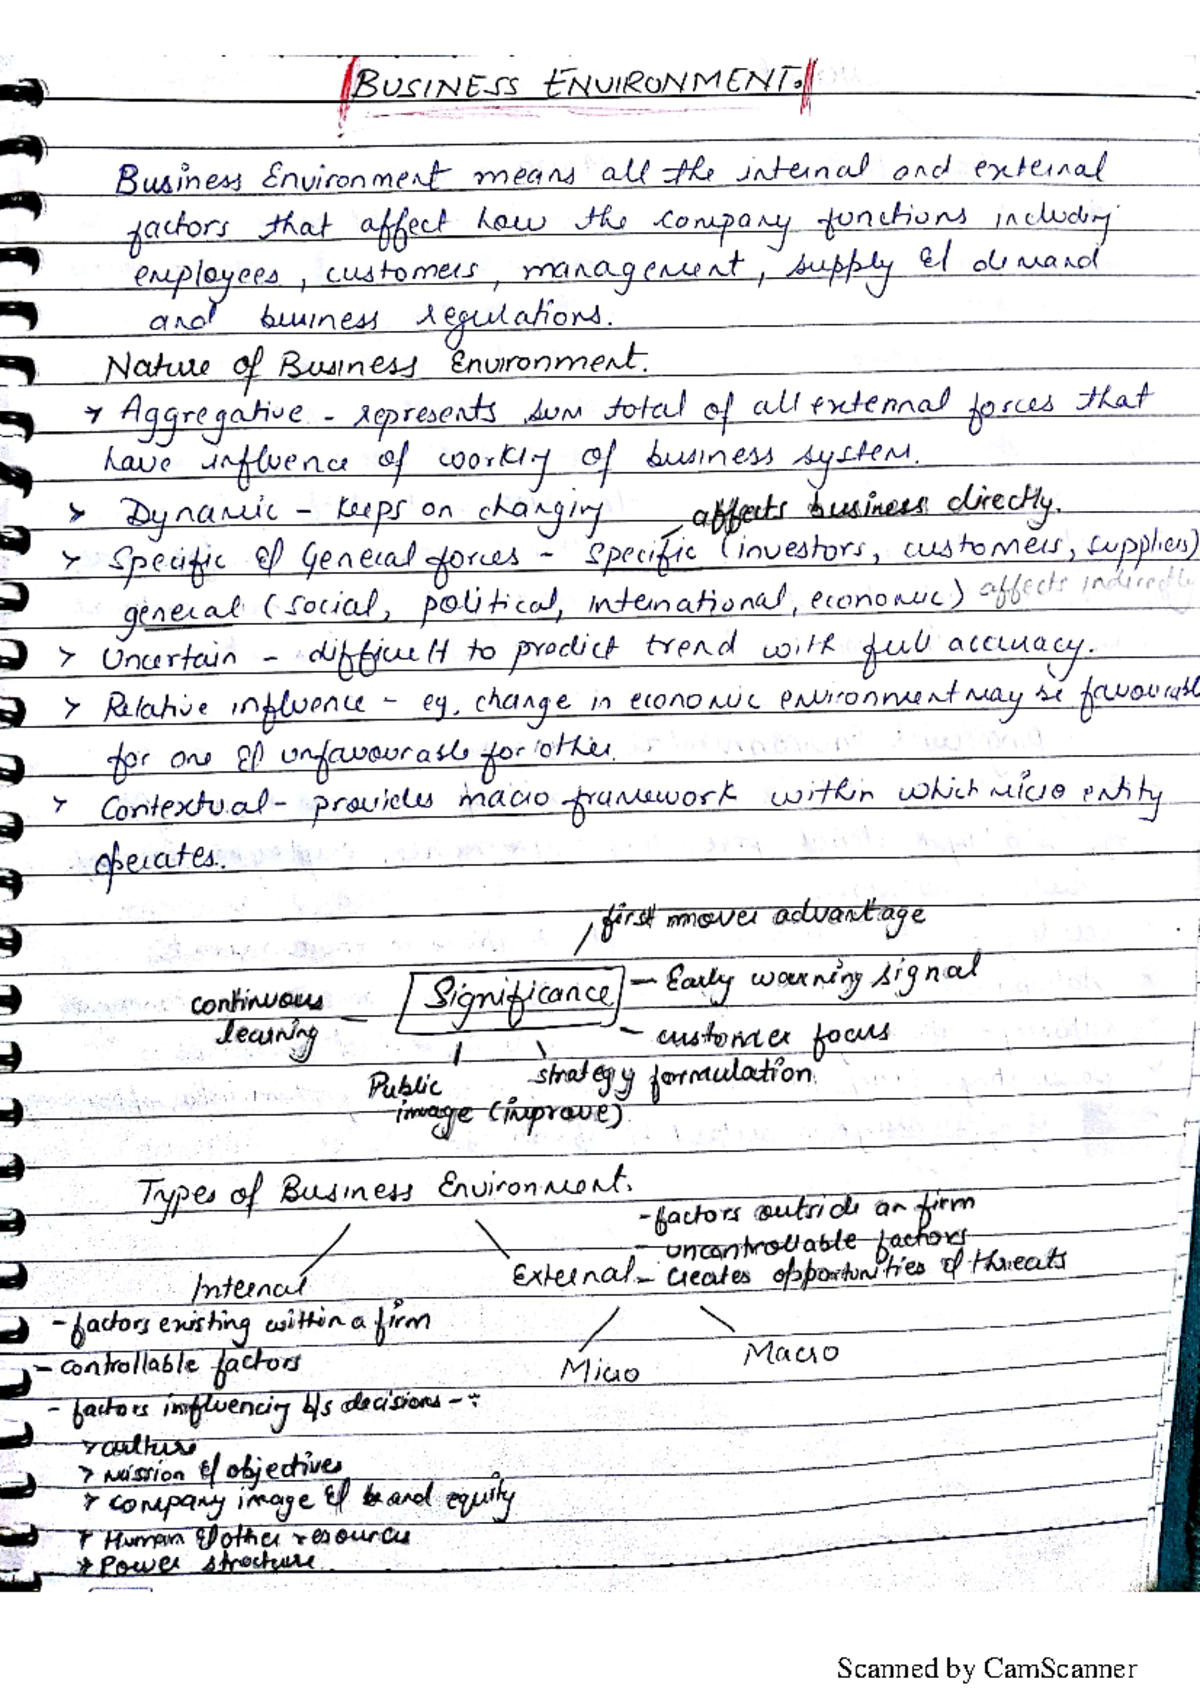 BUSINESS ENVIRONMENT.
Business Environment means all the internal and external
factors that affect how the company functions including
employees, customers, management, supply & demand
and business regulations.
Nature of Business Environment.
> Aggregative - represents sum total of all external forces that
have influence of working of business system.
> Dynamic - keeps on changing
affects business directly.
> Specific & General forces - Specific (investors, customers, suppliers)
general (social, political, international, economic) affects indirectly
> Uncertain - difficult to predict trend with full accuracy.
> Relative influence - eg. change in economic environment may be favourable
for one & unfavourable for other.
> Contextual - provides macro framework within which micro entity
operates.
first mover advantage
Significance
- Early warning signal
continuous
learning
- customer focus
strategy formulation
Public
image (improve)
Types of Business Environment.
- factors outside an firm
- uncontrollable factors
External - creates opportunities & threats
Internal
- factors existing within a firm
- controllable factors
Micro
Macro
- factors influencing b/s decisions -÷
> culture
> Mission & objectives
> company image & brand equity
> Human & other resources
> Power structure
Scanned by CamScanner